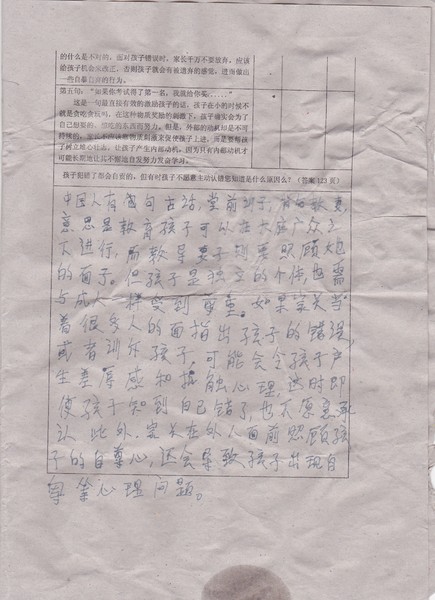 的什么是不对的。面对孩子错误时，家长千万不要放弃，应该
给孩子机会来改正，否则孩子就会有被遗弃的感觉，进而做出
一些自暴自弃的行为。
第五句：“如果你考试得了第一名，我就给你买……”
这是一句最直接有效的激励孩子的话，孩子在小的时候不
就是贪吃贪玩吗，在这种物质奖励的刺激下，孩子确实会为了
自己想要的、想吃的东西而努力。但是，外部的动机却是不可
持续的，家长不应该靠物质刺激来促使孩子上进，而是要帮孩
子树立雄心壮志，让孩子产生内部动机，因为只有内部动机才
可能长期地让其不断地自发努力发奋学习。
孩子犯错了都会自责的，但有时孩子不愿意主动认错您知道是什么原因么？（答案123页）
中国人有句古话，堂前训子，枕边教妻，
意思是教育孩子可以在大庭广众之
下进行，而教导妻子则要照顾她
的面子。但孩子是独立的个体，也需
与成人一样受到尊重。如果家长当
着很多人的面指出孩子的错误，
或者训斥孩子，可能会令孩子产
生羞辱感和抵触心理，这时即
使孩子知到自己错了，也不愿意承
认。此外，家长在外人面前照顾孩
子的自尊心，还会导致孩子出现自
卑等心理问题。